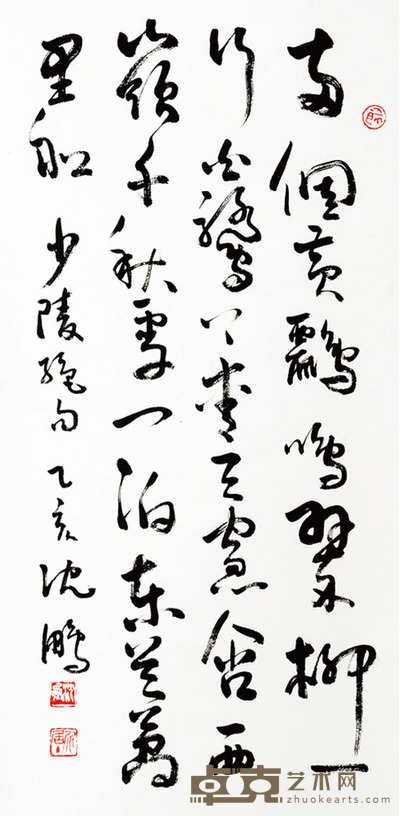 两個黄鸝鳴翠柳一
行白鷺上青天窗含西
嶺千秋雪门泊東吴萬
里船 少陵絶句 乙亥 沈鵬
卓克艺术网
zhuokearts.com